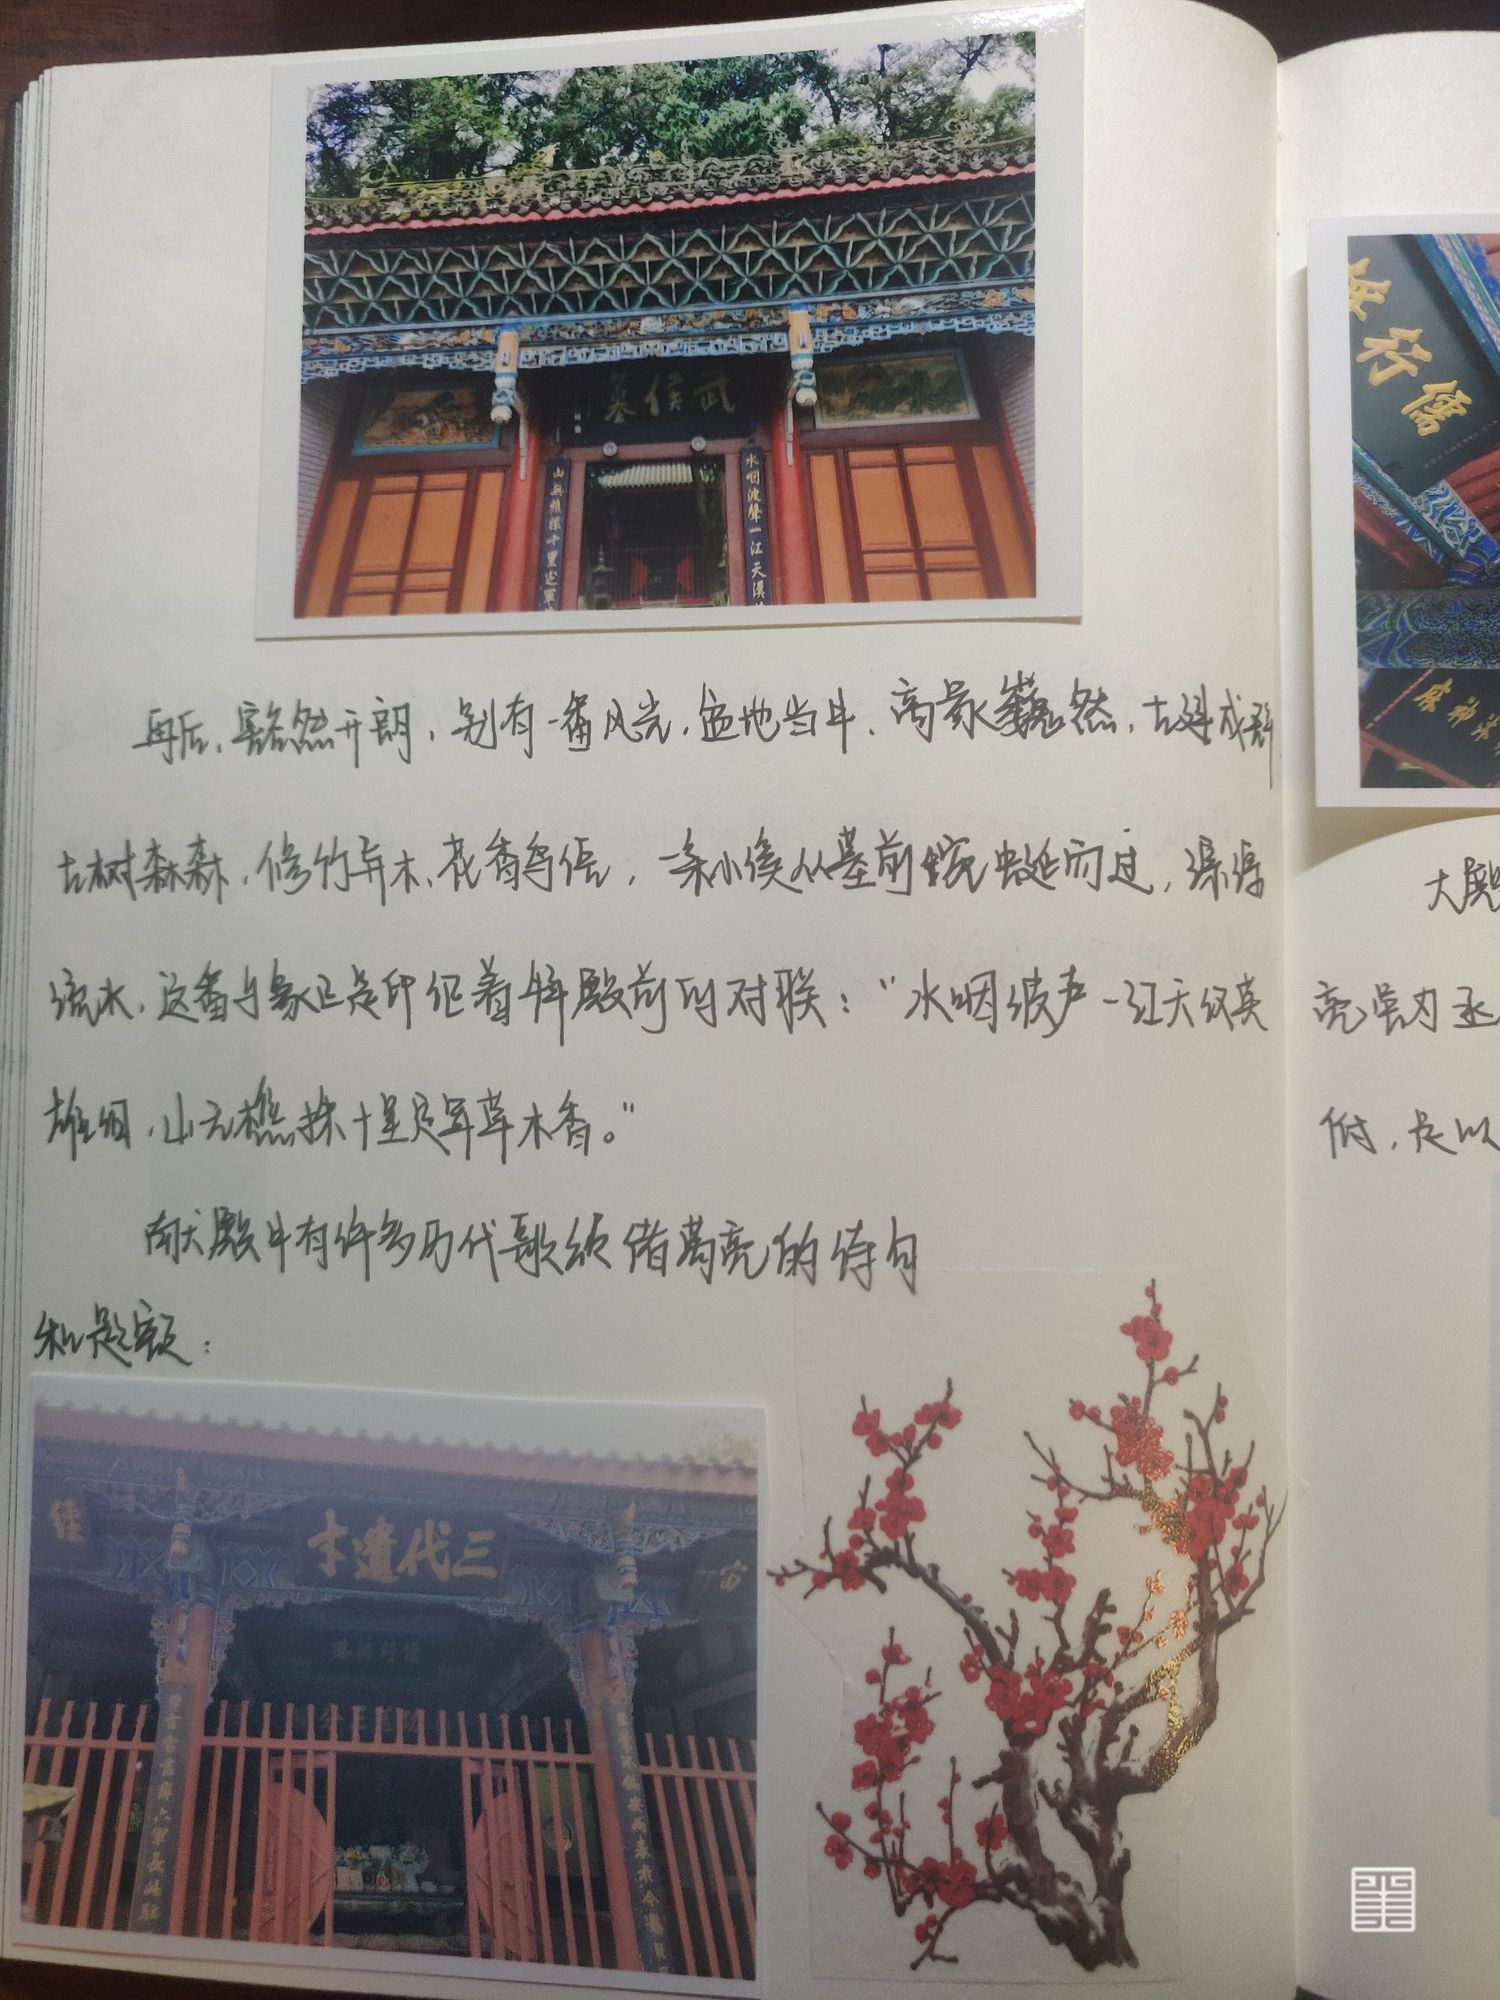 武侯墓
水咽波声一江天汉
山無樵採十里定軍
再后,豁然开朗,别有一番风光,盆地当中,高冢巍然,古建成群
古树森森,修竹弃木,花香鸟语,一条小溪从墓前蜿蜒而过,潺潺
流水,这番景象正是印证着拜殿前的对联:“水咽波声一江天汉英
雄泪,山无樵採十里定军草木香。”
献殿中有许多历代歌颂诸葛亮的诗句
和题额:
三代遺才
儒行
大殿
亮尝为丞
附,是以